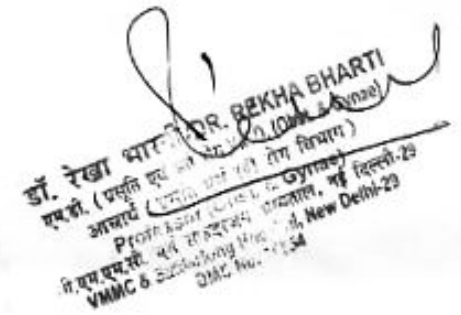 डॉ. रेखा भारती DR. REKHA BHARTI
एम.डी. (प्रसूति एवं (Obst & Gynae)
आचार्य (प्रसूति एवं स्त्री रोग विभाग)
Professor (Obst. & Gynae)
एवं सफदरजंग अस्पताल, नई दिल्ली-29
VMMC & Safdarjung Hospital, New Delhi-29
DMC No.